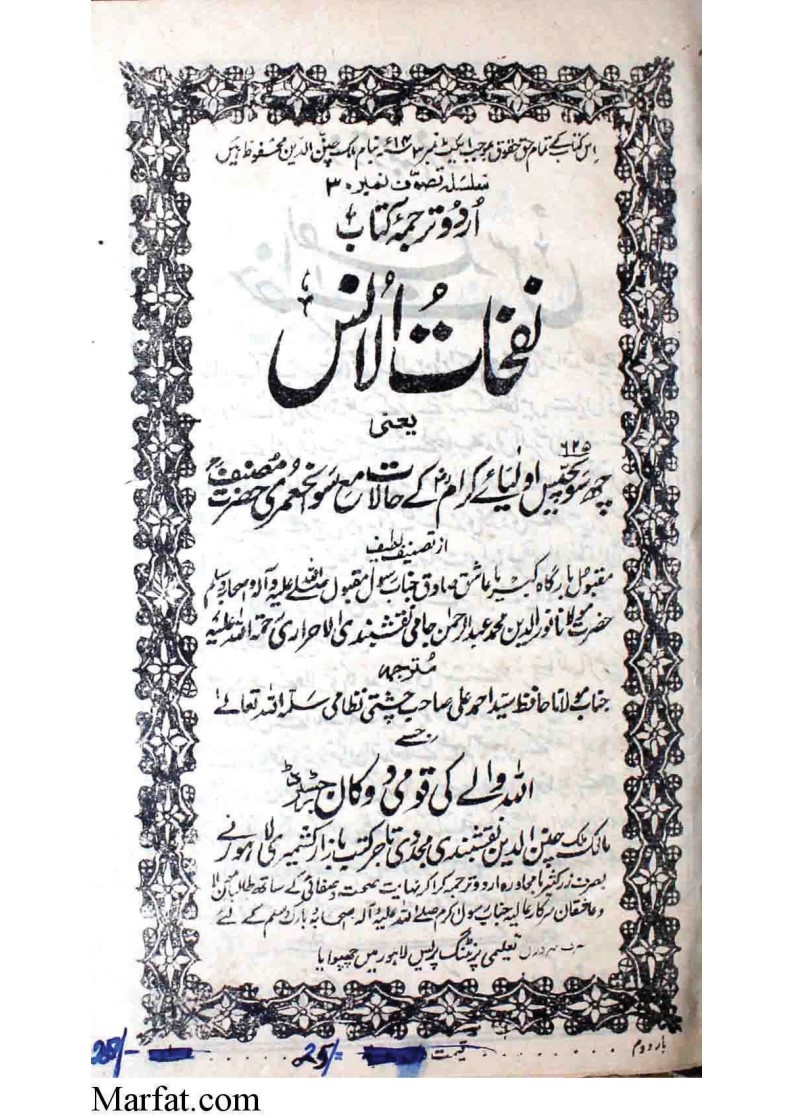 اس کتاب کے تمام حق حقوق بموجب ایکٹ نمبر ۳ ۱۹۱۴ء بنام ملک چنن الدین محفوظ ہیں
سلسلہ تصوف نمبر ۳۰
اُردو ترجمہ کتاب
نفحاتُ الاُنس
یعنی
۶۲۵
چھ سو پچیس اولیائے کرامؒ کے حالات مع سوانحعمری حضرت مصنفؒ
از تصنیف لطیف
مقبول بارگاہ کبیر یا عاشق صادق جناب رسول مقبول صلی اللہ علیہ وآلہ واصحابہ وسلم
حضرت مولانا نور الدین محمد عبد الرحمٰن جامی نقشبندی الاحراری رحمۃ اللہ علیہ
مُترجمہ
جناب مولانا حافظ سید احمد علی صاحب چشتی نظامی سلمہ اللہ تعالےٰ
جسے
اللہ والے کی قومی دوکان رجسٹرڈ
مالک ملک چنن الدین نقشبندی مجددی تاجر کتب بازار کشمیری لاہور نے
بصرف زر کثیر بامحاورہ اردو ترجمہ کرا کر نہایت صحت و صفائی کے ساتھ طالبان
و عاشقان سرکار عالیہ جناب رسول اکرم صلے اللہ علیہ وآلہ واصحابہ وبارک وسلم کے لئے
تعلیمی پرنٹنگ پریس لاہور میں چھپوایا
بار دوم
قیمت
25/=
25/-
Marfat.com